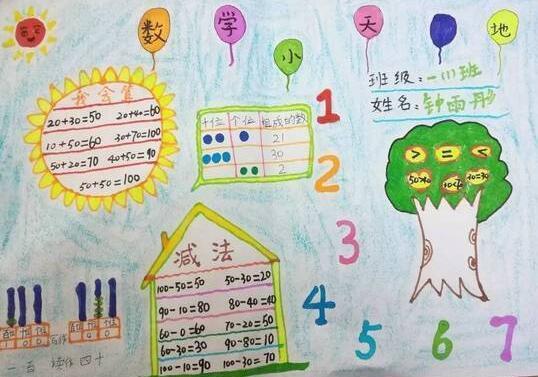 数学小天地
班级:一(1)班
姓名:钟雨彤
我会算
20+30=50 20+40=60
10+50=60 30+70=100
50+20=70 40+50=90
50+50=100
十位 个位 组成的数
21
30
2
> = <
50>40 10<40 30=30
减法
100-50=50 50-30=20
90-10=80 80-40=40
60-0=60 70-20=50
60-30=30 90-80=10
100-10=90 100-30=70
1
2
3
4
5
6
7
百位 十位 个位
1 0 0
百位 十位 个位
4 0
一百 读作 四十